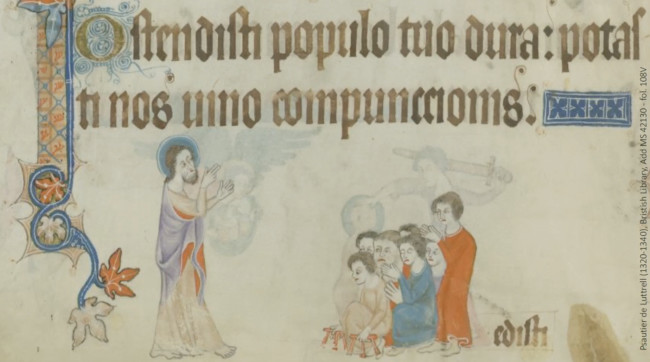 Ostendisti populo tuo dura: potas
ti nos uino compunccionis.
edisti
Psautier de Luttrell (1320-1340), British Library, Add MS 42130 - fol. 108V